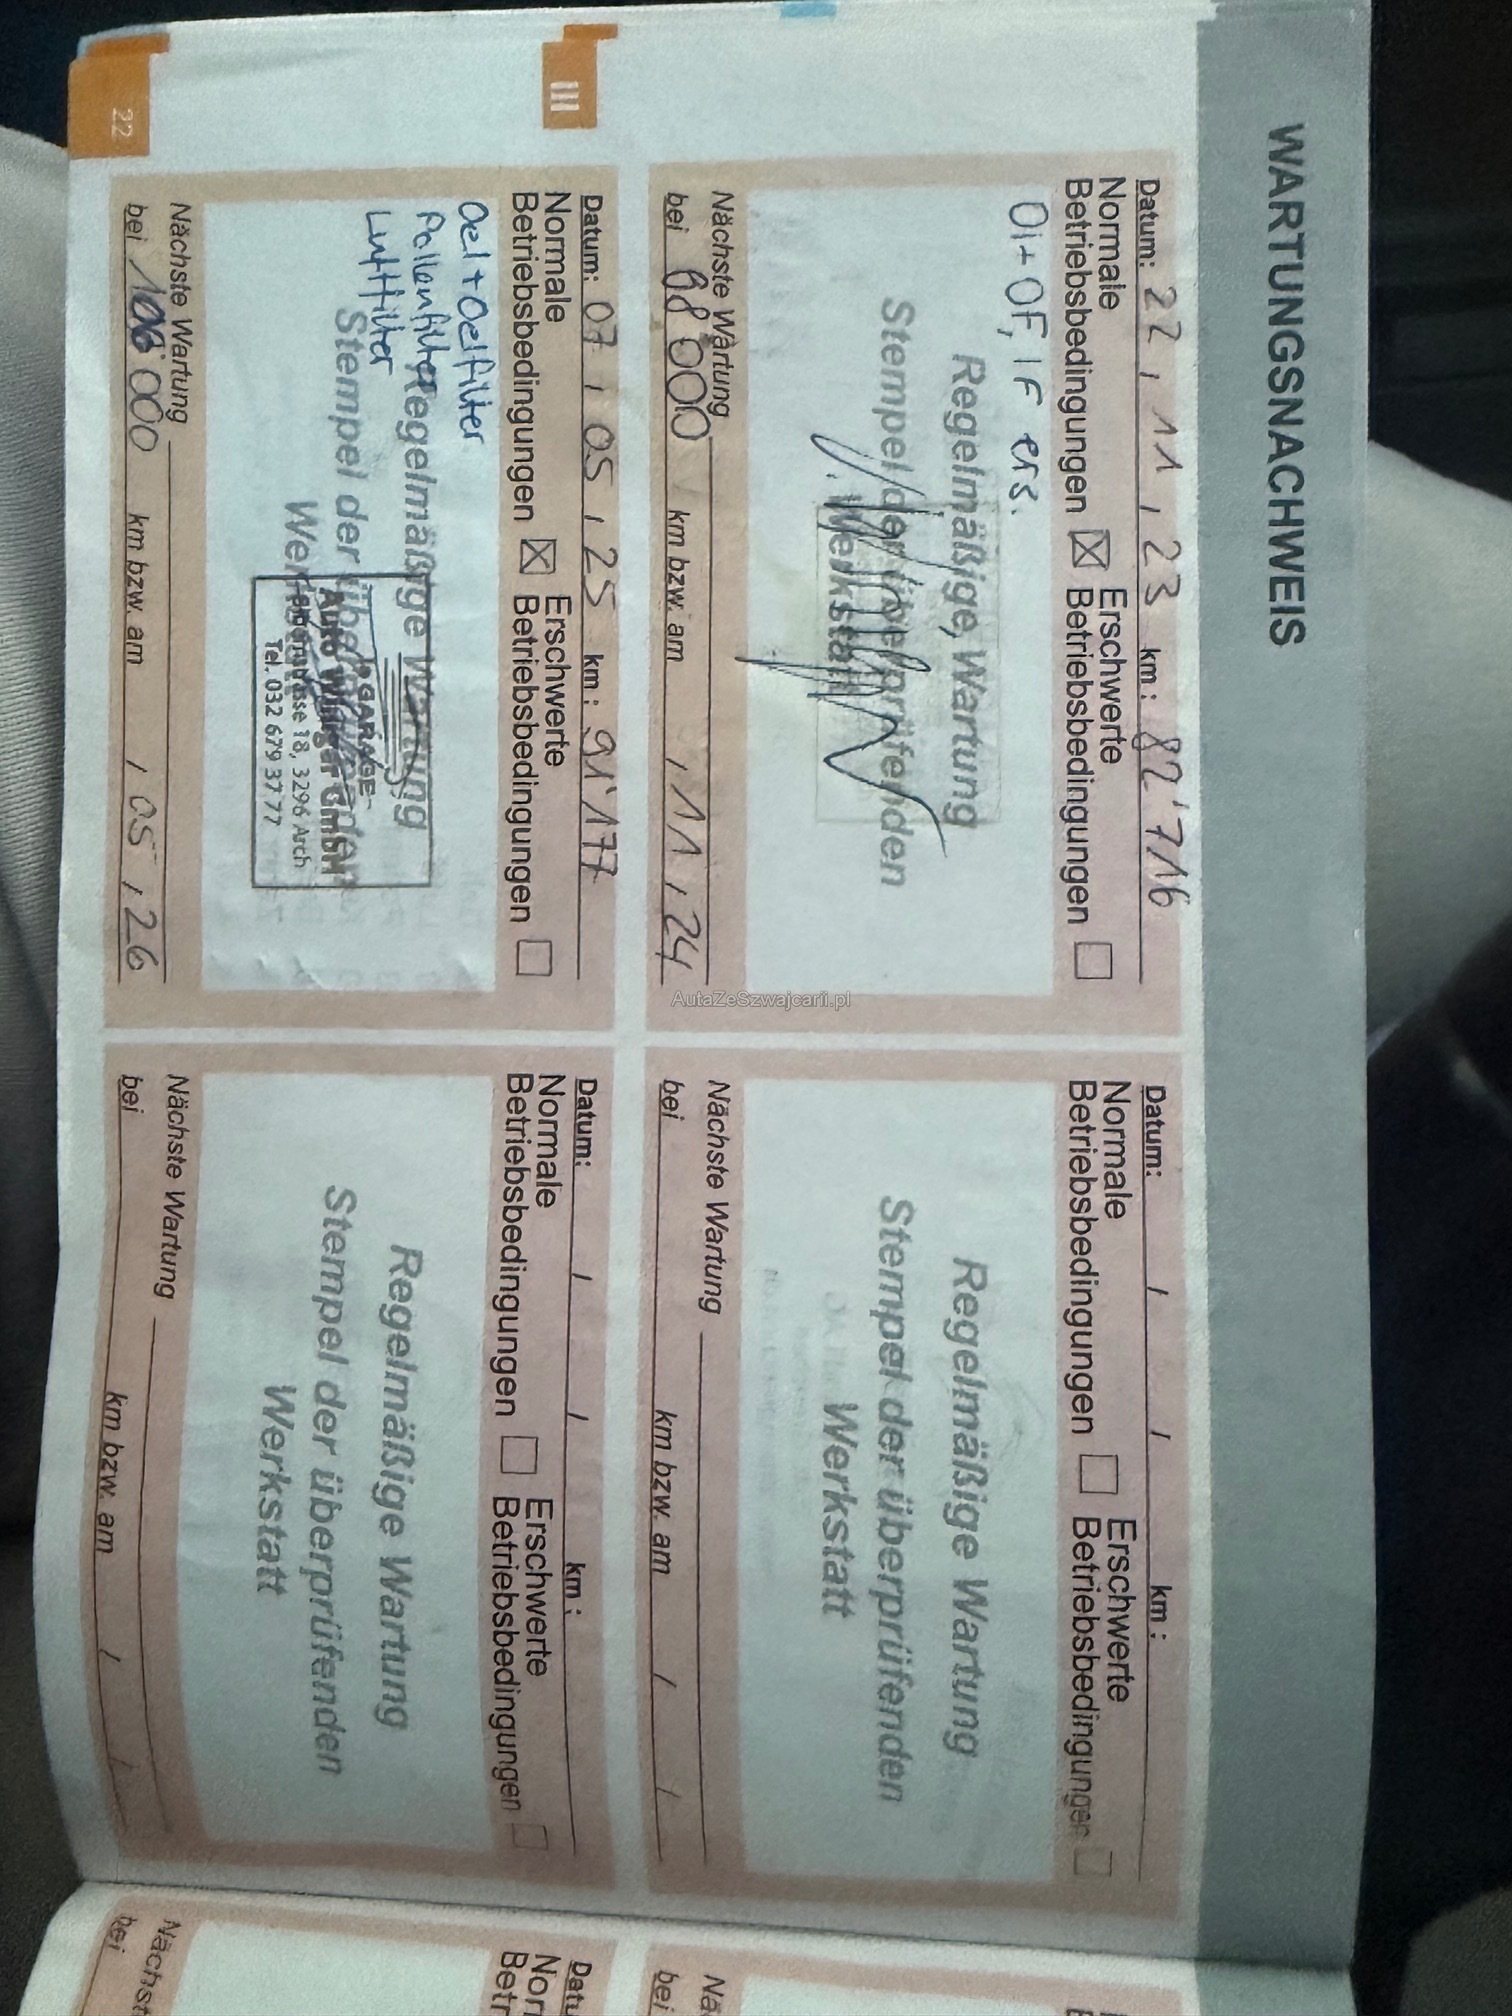 WARTUNGSNACHWEIS
Datum: 22 / 11 / 23 km: 82'716
Normale Betriebsbedingungen ☒ Erschwerte Betriebsbedingungen ☐
OF, IF ers.
Regelmäßige Wartung
Stempel der überprüfenden
Werkstatt
Nächste Wartung
bei 98000 km bzw. am / 11 / 24
Datum: / / km:
Normale Betriebsbedingungen ☐ Erschwerte Betriebsbedingungen ☐
Regelmäßige Wartung
Stempel der überprüfenden
Werkstatt
Nächste Wartung
bei km bzw. am / /
III
Datum: 07 / 05 / 25 km: 91'177
Normale Betriebsbedingungen ☒ Erschwerte Betriebsbedingungen ☐
Oel + Oelfilter
Pollenfilter
Luftfilter
Regelmäßige Wartung
Stempel der überprüfenden
GARAGE
Auto GmbH
18, 3296 Arch
Tel. 032 679 37 77
Nächste Wartung
bei 000 km bzw. am / 05 / 26
Datum: / / km:
Normale Betriebsbedingungen ☐ Erschwerte Betriebsbedingungen ☐
Regelmäßige Wartung
Stempel der überprüfenden
Werkstatt
Nächste Wartung
bei km bzw. am / /
22
AutaZeSzwajcarii.pl